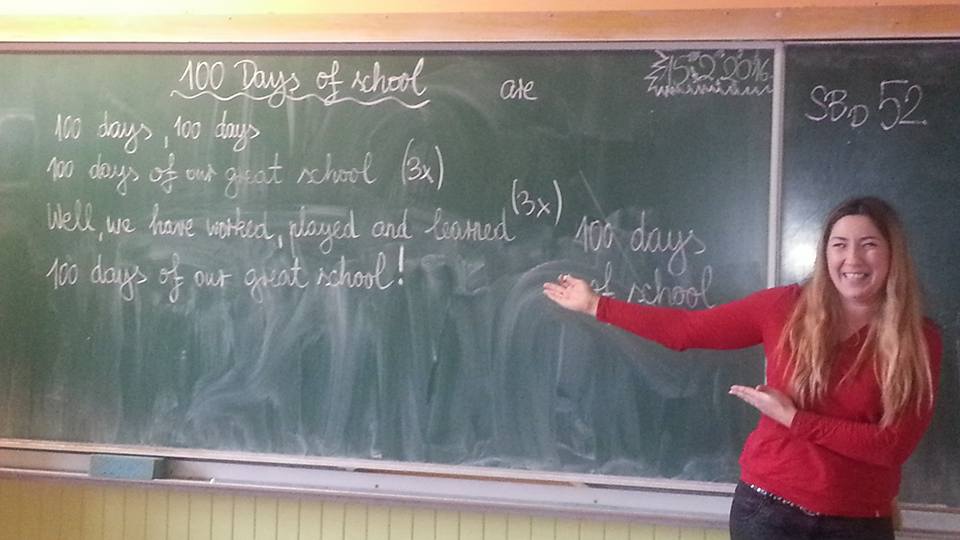 100 Days of school
are
15.2.2016
SBD 52
100 days, 100 days
100 days of our great school (3x)
Well, we have worked, played and learned (3x)
100 days of our great school!
100 days
of school